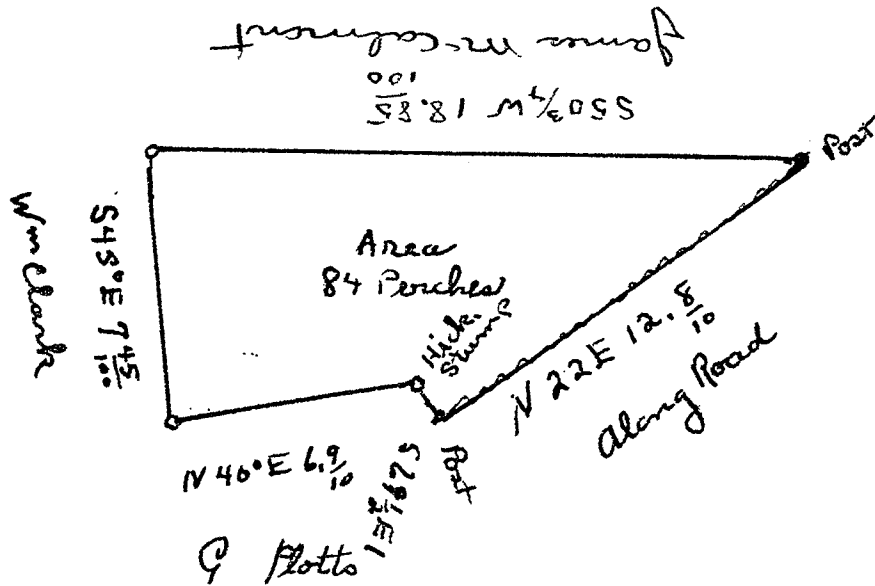 James McCalmont
S50 3/4 W 18.85/100
Post
Wm Clark
S45°E 7 45/100
Area
84 Perches
Hick.
Stump
N 22E 12.8/10
Along Road
N 40°E 6.9/10
Post
G Plotts